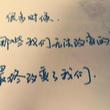 很多时候，
那些我们无法改变的
最终改变了我们.